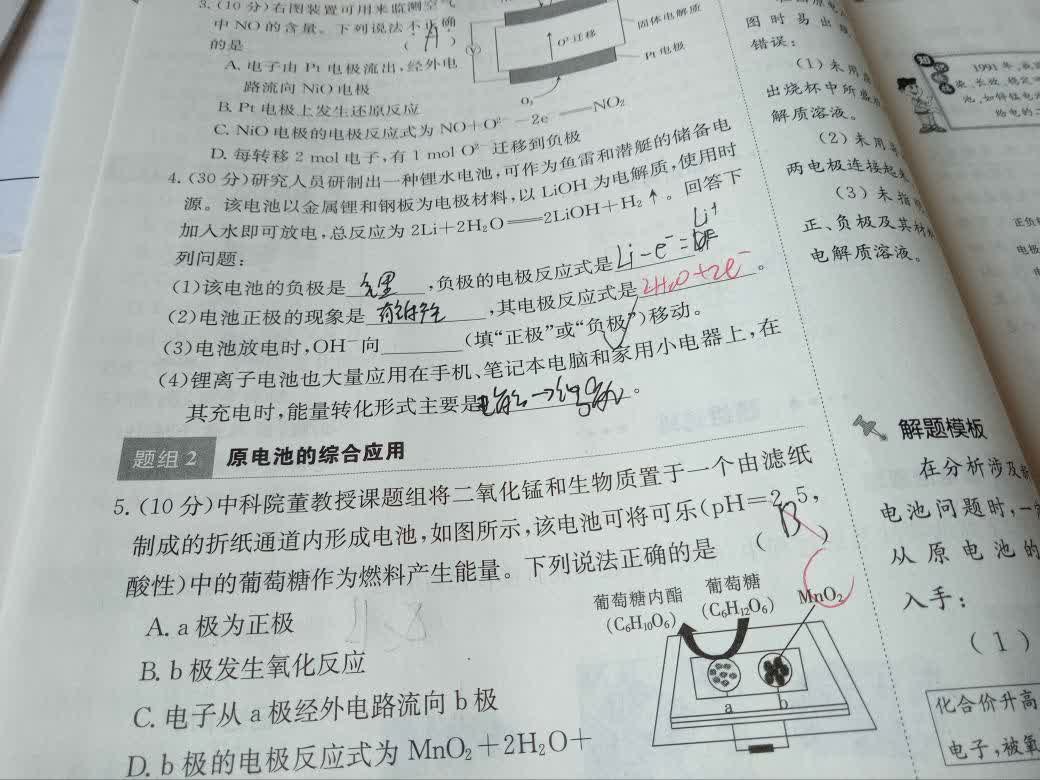 3. (10分)右图装置可用来监测空气
中NO的含量。下列说法不正确
的是 ( A )
A. 电子由Pt电极流出,经外电
路流向NiO电极
B. Pt电极上发生还原反应
C. NiO电极的电极反应式为NO+O²⁻-2e⁻══NO₂
D. 每转移2 mol电子,有1 mol O²⁻迁移到负极
固体电解质
O²⁻迁移
Pt电极
O₂
4. (30分)研究人员研制出一种锂水电池,可作为鱼雷和潜艇的储备电
源。该电池以金属锂和钢板为电极材料,以LiOH为电解质,使用时
加入水即可放电,总反应为2Li+2H₂O══2LiOH+H₂↑。回答下
列问题:
(1)该电池的负极是 锂 ,负极的电极反应式是 Li-e⁻= Li⁺
(2)电池正极的现象是 ,其电极反应式是 2H₂O+2e⁻ 。
(3)电池放电时,OH⁻向 (填“正极”或“负极”)移动。
(4)锂离子电池也大量应用在手机、笔记本电脑和家用小电器上,在
其充电时,能量转化形式主要是 电能→化学能 。
题组2 原电池的综合应用
5. (10分)中科院董教授课题组将二氧化锰和生物质置于一个由滤纸
制成的折纸通道内形成电池,如图所示,该电池可将可乐(pH=2.5,
酸性)中的葡萄糖作为燃料产生能量。下列说法正确的是 ( B )
A. a极为正极
B. b极发生氧化反应
C. 电子从a极经外电路流向b极
D. b极的电极反应式为MnO₂+2H₂O+
葡萄糖内酯
(C₆H₁₀O₆)
葡萄糖
(C₆H₁₂O₆)
MnO₂
a
b
图时易出
错误:
(1)未用
出烧杯中所盛
解质溶液。
(2)未用
两电极连接起来
(3)未指
正、负极及其材
电解质溶液。
解题模板
在分析涉及
电池问题时,一
从原电池的
入手:
(1)
化合价升高
电子,被氧
1991年,